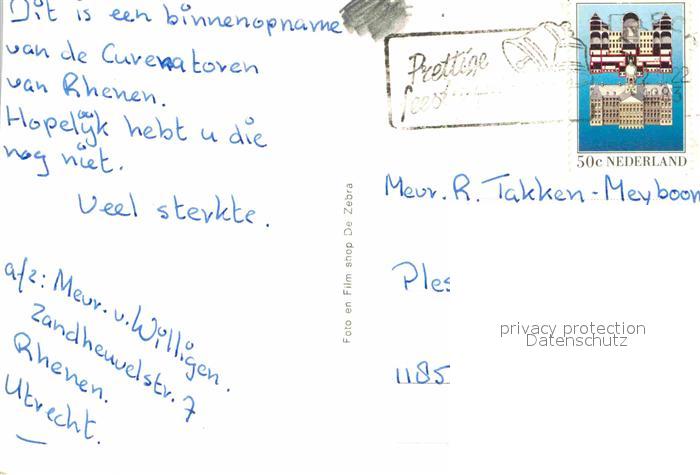 Dit is een binnenopname
van de Cunenatoren
van Rhenen.
Hopelijk hebt u die
nog niet.
Veel sterkte.
afz: Mevr. v. Willigen.
Zandheuvelstr. 7
Rhenen.
Utrecht.
Foto en Film shop De Zebra
Prettige
feest
50c NEDERLAND
Mevr. R. Takken-Meyboom
Ples
1185
privacy protection
Datenschutz